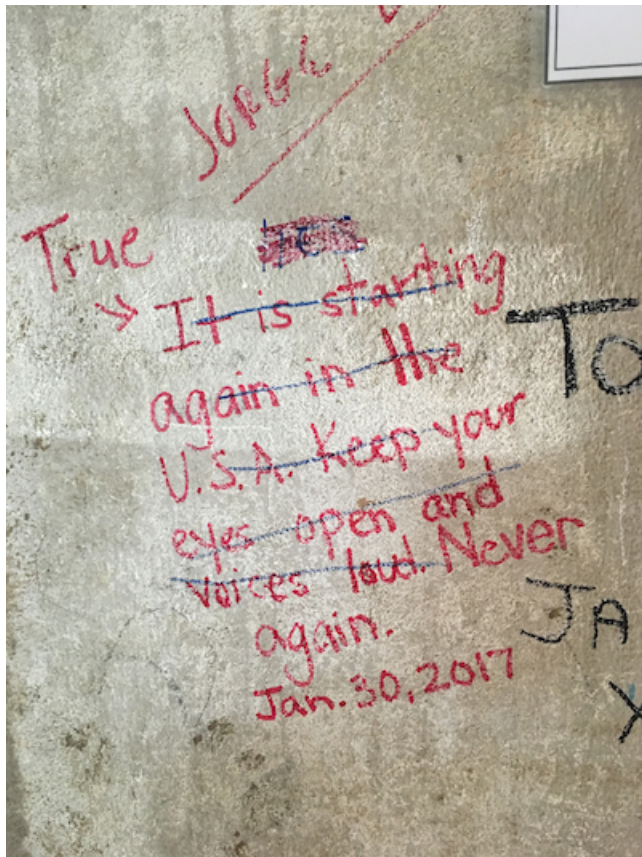 JORGE
True
It is starting
again in the
U.S.A. Keep your
eyes open and
voices loud. Never
again.
Jan. 30, 2017
TO
JA